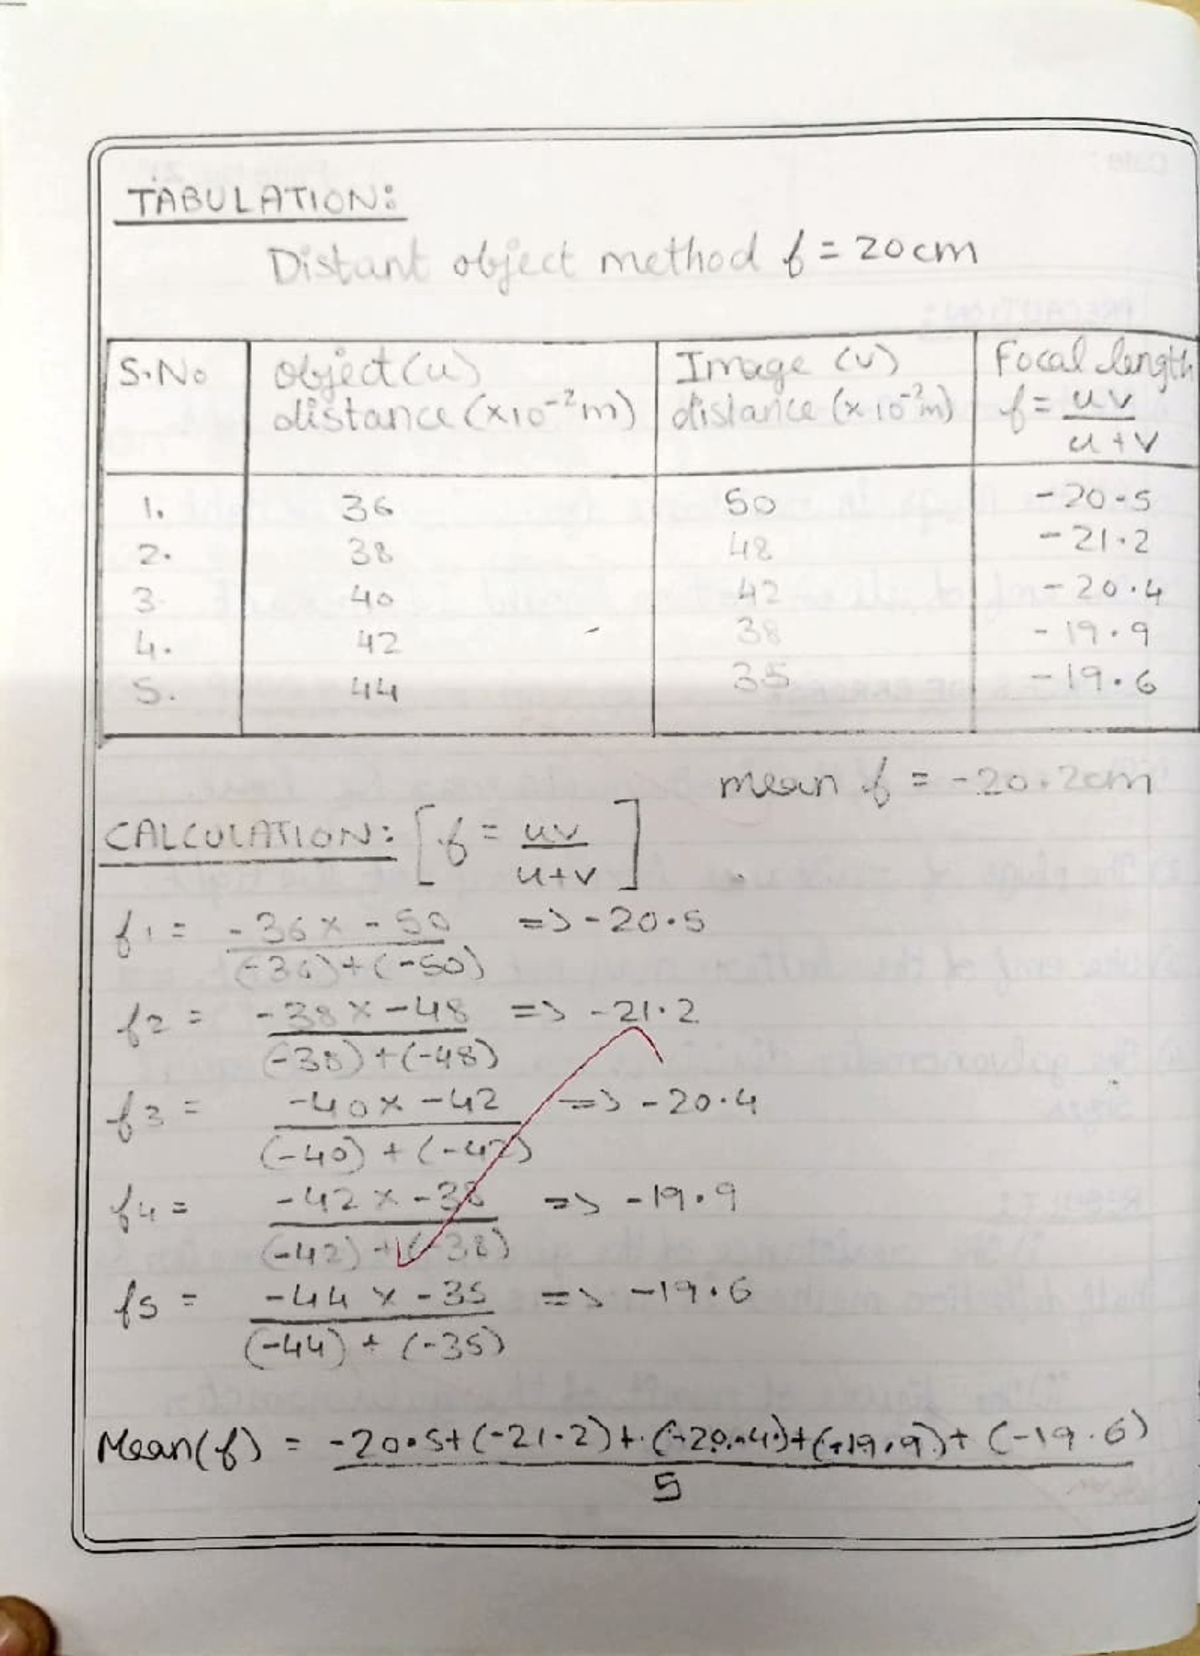 TABULATION:
Distant object method f = 20cm
S.No object(u) distance (x10⁻²m) Image (v) distance (x10⁻²m) Focal length f = uv/u+v
1. 36 50 -20.5
2. 38 48 -21.2
3. 40 42 -20.4
4. 42 38 -19.9
5. 44 35 -19.6
mean f = -20.2cm
CALCULATION: [f = uv/u+v]
f1 = -36 x -50/(-36)+(-50) => -20.5
f2 = -38 x -48/(-38)+(-48) => -21.2
f3 = -40 x -42/(-40)+(-42) => -20.4
f4 = -42 x -38/(-42)+(-38) => -19.9
f5 = -44 x -35/(-44)+(-35) => -19.6
Mean(f) = -20.5+(-21.2)+(-20.4)+(-19.9)+(-19.6)/5